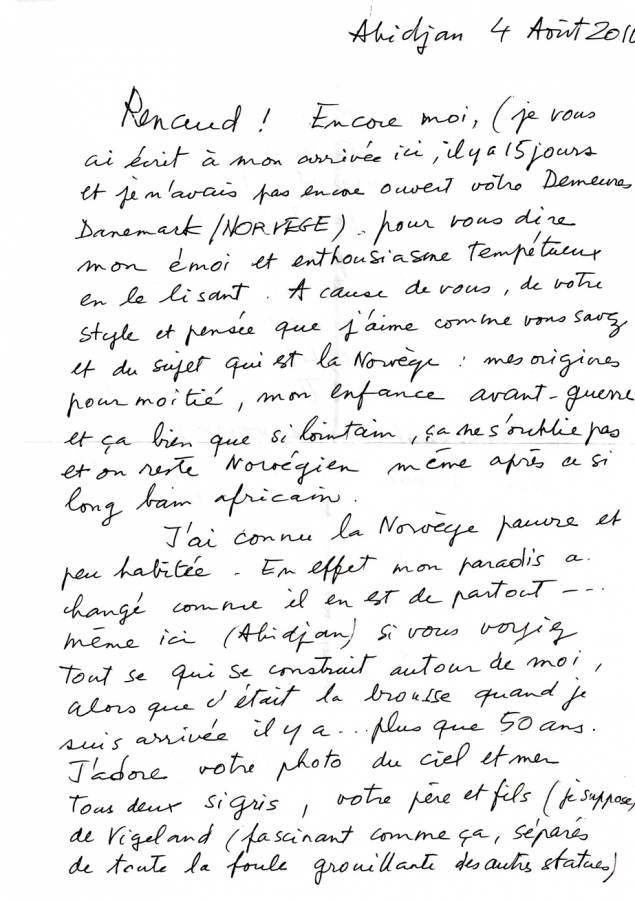 Abidjan 4 Août 201
Renaud ! Encore moi, (je vous
ai écrit à mon arrivée ici, il y a 15 jours
et je n'avais pas encore ouvert vôtre Demeures
Danemark/NORVEGE). pour vous dire
mon émoi et enthousiasme tempétueux
en le lisant. A cause de vous, de votre
style et pensée que j'aime comme vous savez
et du sujet qui est la Norvège : mes origines
pour moitié, mon enfance avant-guerre
et ça bien que si lointain, ça ne s'oublie pas
et on reste Norvégien même après ce si
long bain africain.
J'ai connu la Norvège pauvre et
peu habitée. En effet mon paradis a
changé comme il en est de partout ---
même ici (Abidjan) si vous voyiez
tout se qui se construit autour de moi,
alors que c'était la brousse quand je
suis arrivée il y a... plus que 50 ans.
J'adore votre photo du ciel et mer
tous deux si gris, votre père et fils (je suppose)
de Vigeland (fascinant comme ça, séparés
de toute la foule grouillante des autres statues)